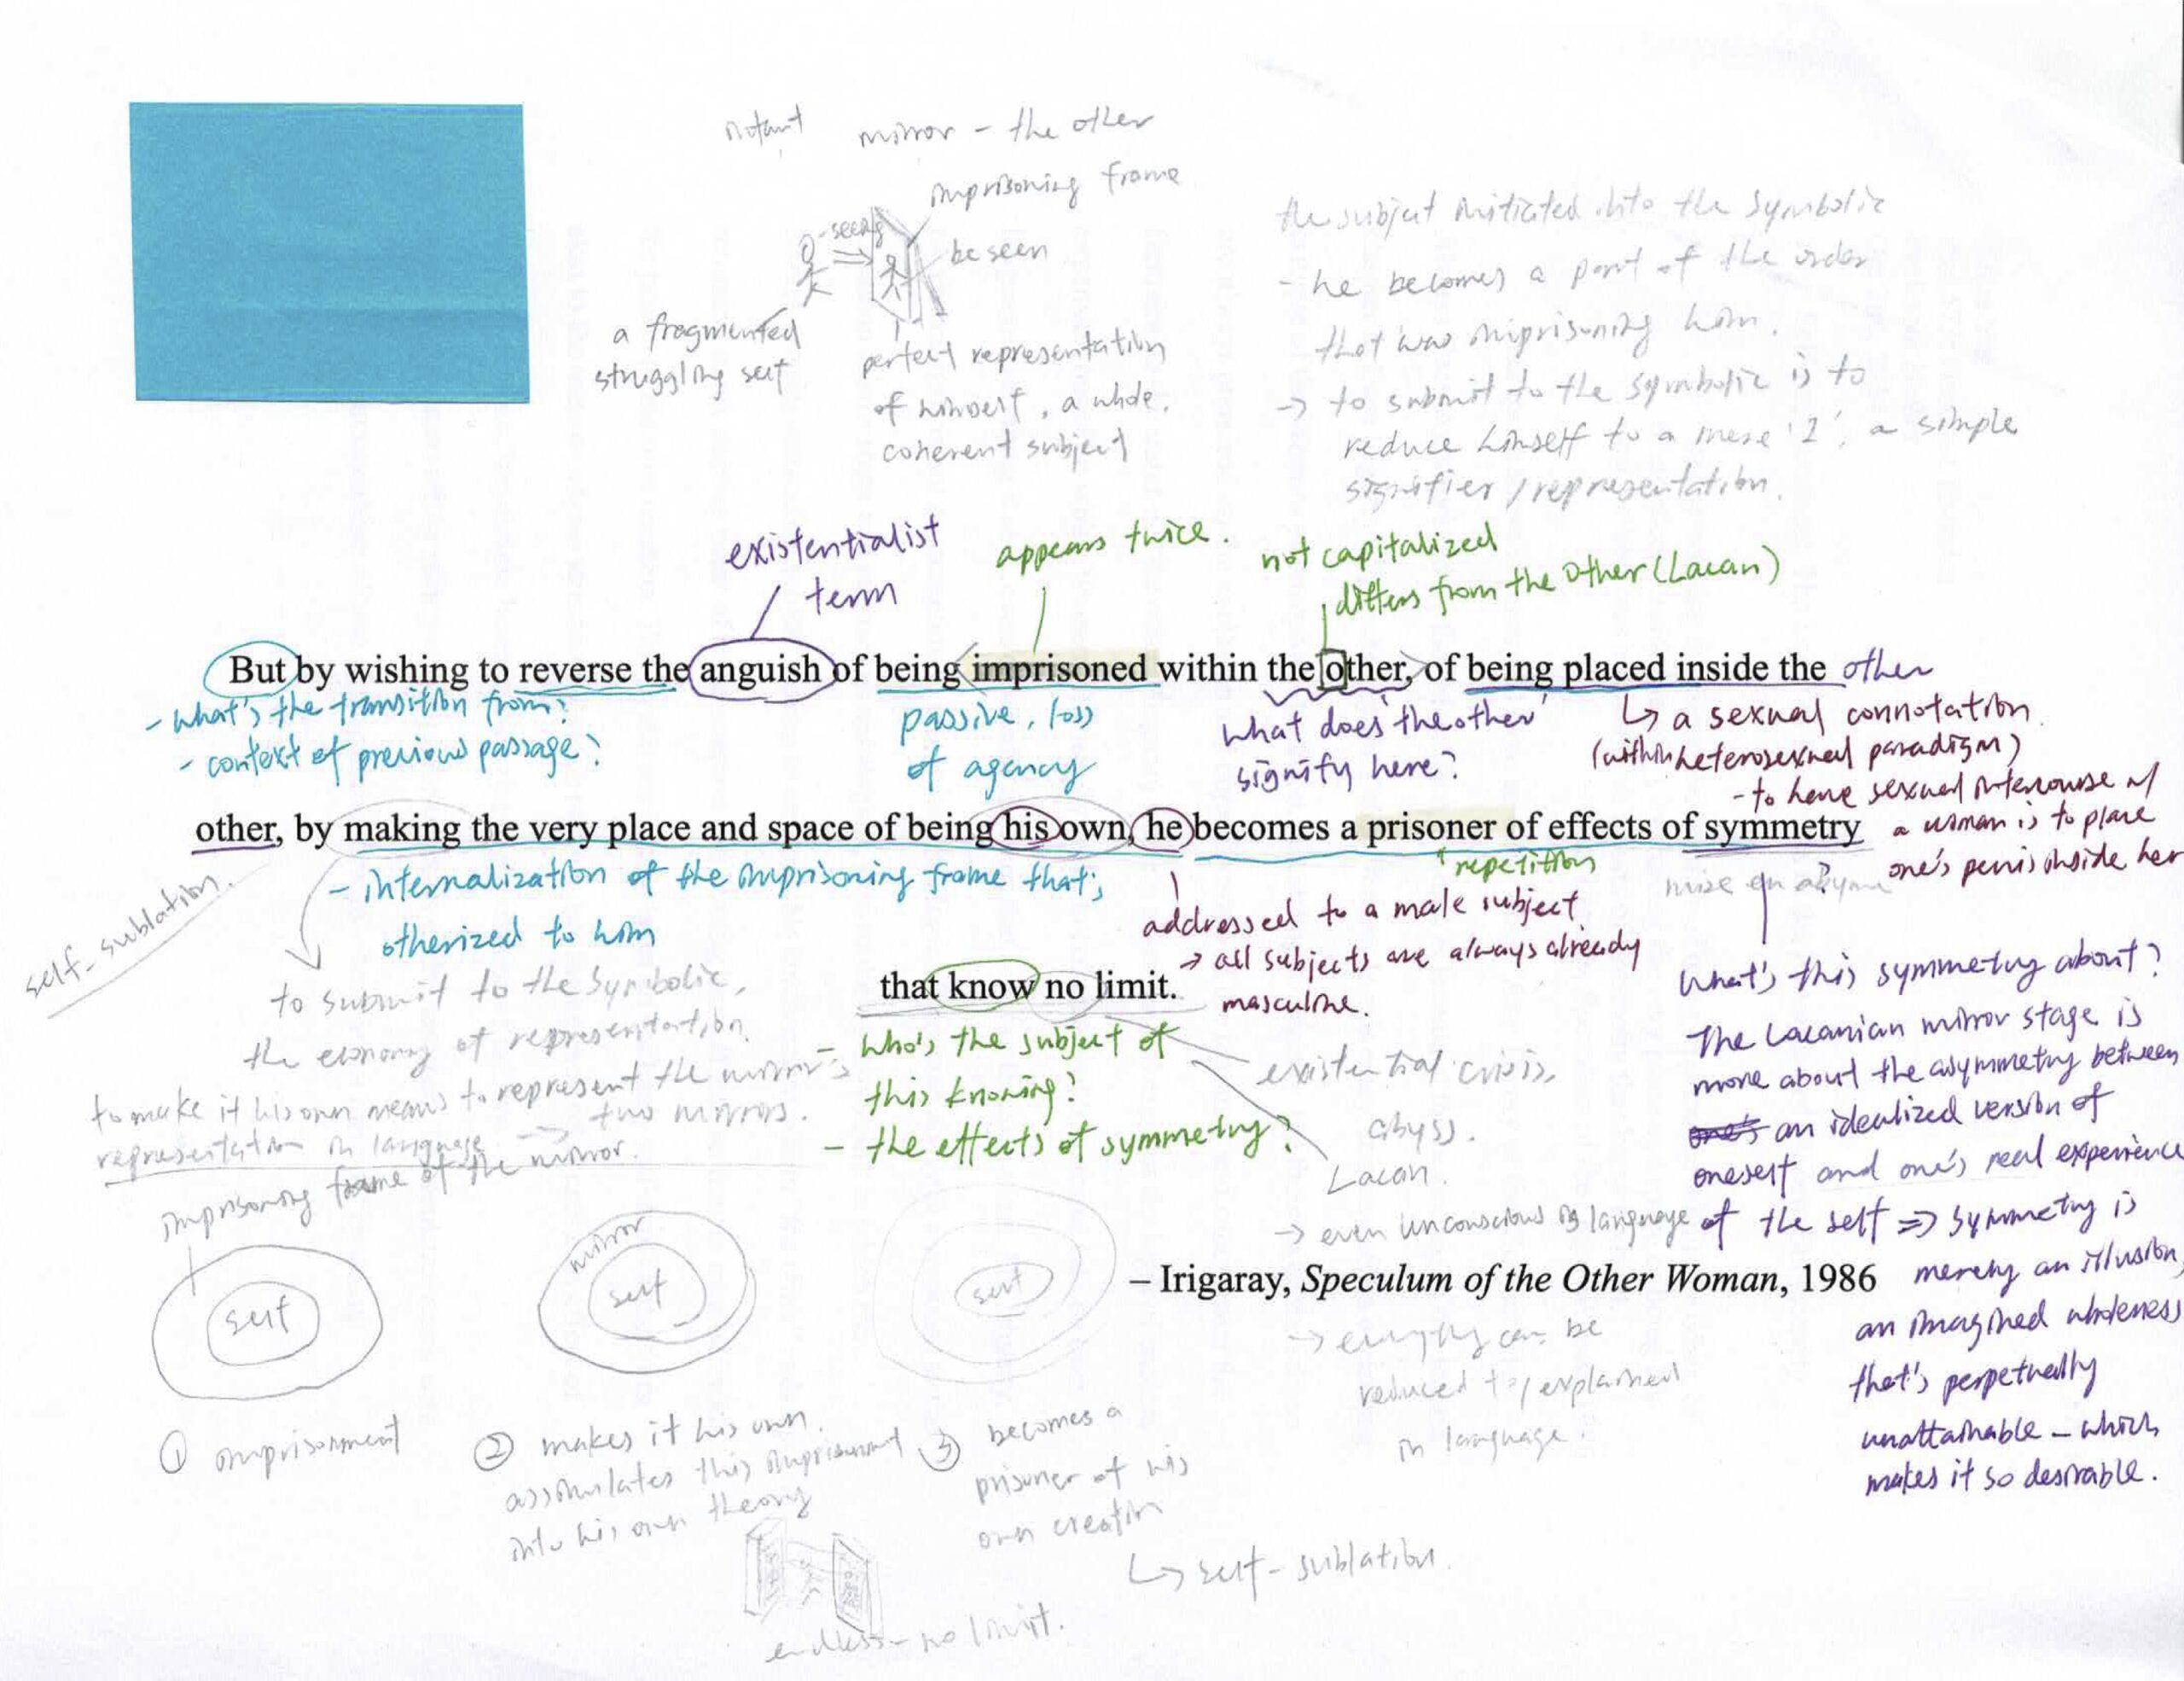 mirror - the other
imprisoning frame
seeing
be seen
a fragmented
struggling self
perfect representation
of himself, a whole,
coherent subject
the subject initiated into the Symbolic
- he becomes a part of the order
that was imprisoning him.
→ to submit to the Symbolic is to
reduce himself to a mere 'I', a simple
signifier / representation.
existentialist
term
appears twice.
not capitalized
differs from the Other (Lacan)
But by wishing to reverse the anguish of being imprisoned within the other, of being placed inside the other
- what's the transition from?
- context of previous passage?
passive, loss
of agency
what does 'the other'
signify here?
↳ a sexual connotation
(within heterosexual paradigm)
- to have sexual intercourse w/
a woman is to place
one's penis inside her
other, by making the very place and space of being his own, he becomes a prisoner of effects of symmetry
- internalization of the imprisoning frame that's
otherized to him
repetition
mise en abyme?
addressed to a male subject
→ all subjects are always already
masculine.
self-sublation.
that know no limit.
to submit to the Symbolic,
the economy of representation.
to make it his own means to represent the mirror's
representation in language → two mirrors.
- who's the subject of
this knowing?
- the effects of symmetry?
existential crisis.
abyss.
Lacan.
→ even unconscious is language
→ everything can be
reduced to/explained
in language.
What's this symmetry about?
The Lacanian mirror stage is
more about the asymmetry between
one's an idealized version of
oneself and one's real experience
of the self ⇒ symmetry is
merely an illusion,
an imagined wholeness
that's perpetually
unattainable - which
makes it so desirable.
– Irigaray, Speculum of the Other Woman, 1986
imprisoning frame of the mirror.
self
mirror
self
self
① imprisonment
② makes it his own.
assimilates this imprisonment
into his own theory
③ becomes a
prisoner of his
own creation
↳ self-sublation.
endless - no limit.